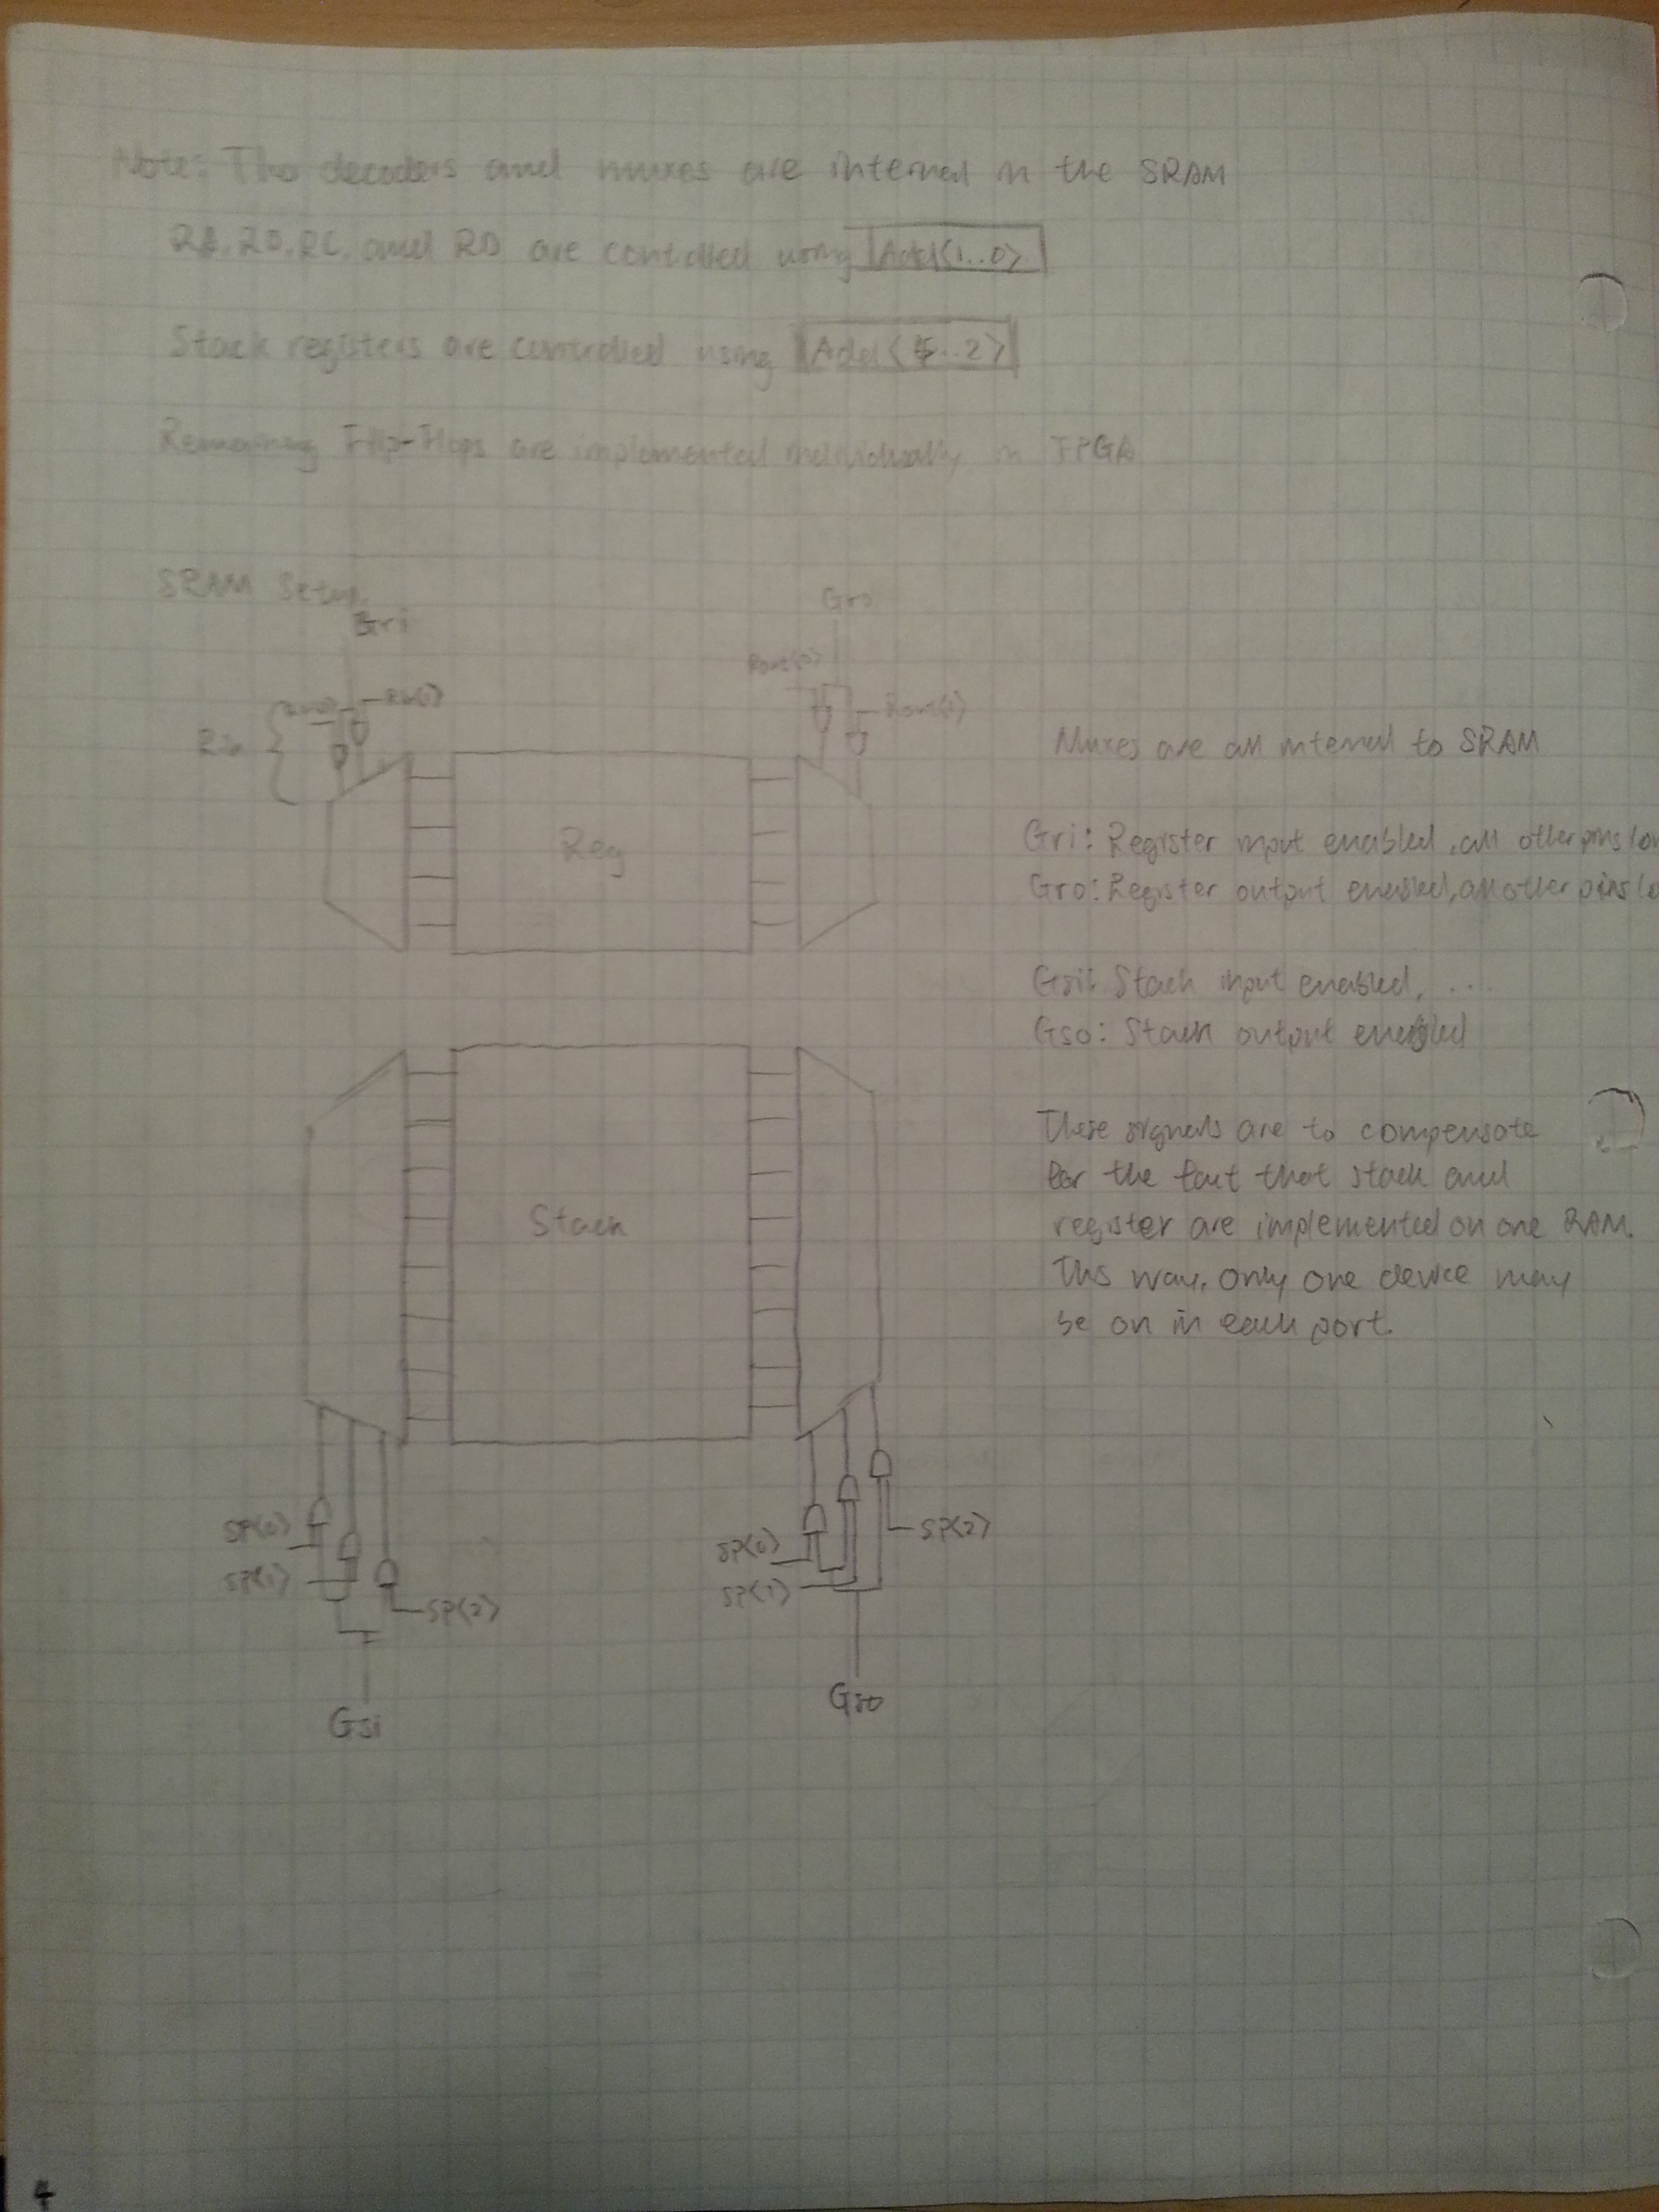 Note: The decoders and muxes are internal in the SRAM
RA, RB, RC, and RD are controlled using Add<1..0>
Stack registers are controlled using Add< ..2>
Remaining Flip-Flops are implemented individually in FPGA
SRAM Setup
Gri
Gro
Rout<0>
Rin<1>
Rout<1>
Rin
Reg
Muxes are all internal to SRAM
Gri: Register input enabled, all other pins low
Gro: Register output enabled, all other pins
Gsi: Stack input enabled, ....
Gso: Stack output enabled
Stack
These signals are to compensate
for the fact that stack and
register are implemented on one RAM.
This way, only one device may
be on in each port.
SP<0>
SP<1>
SP<2>
Gsi
SP<0>
SP<1>
SP<2>
Gso
4